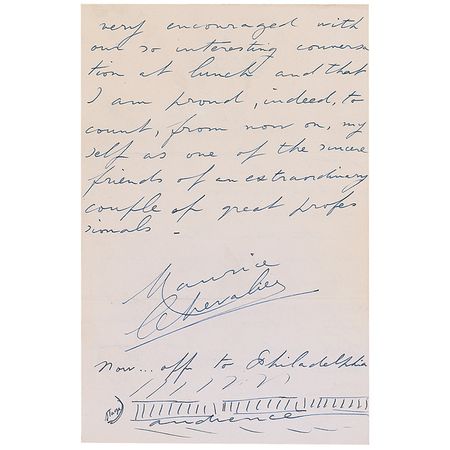 very encouraged with
our so interesting conversa
tion at lunch and that
I am proud, indeed, to
count, from now on, my
self as one of the sincere
friends of an extraordinary
couple of great profes
sionals -
Maurice
Chevalier
Now... off to Philadelphia
audience